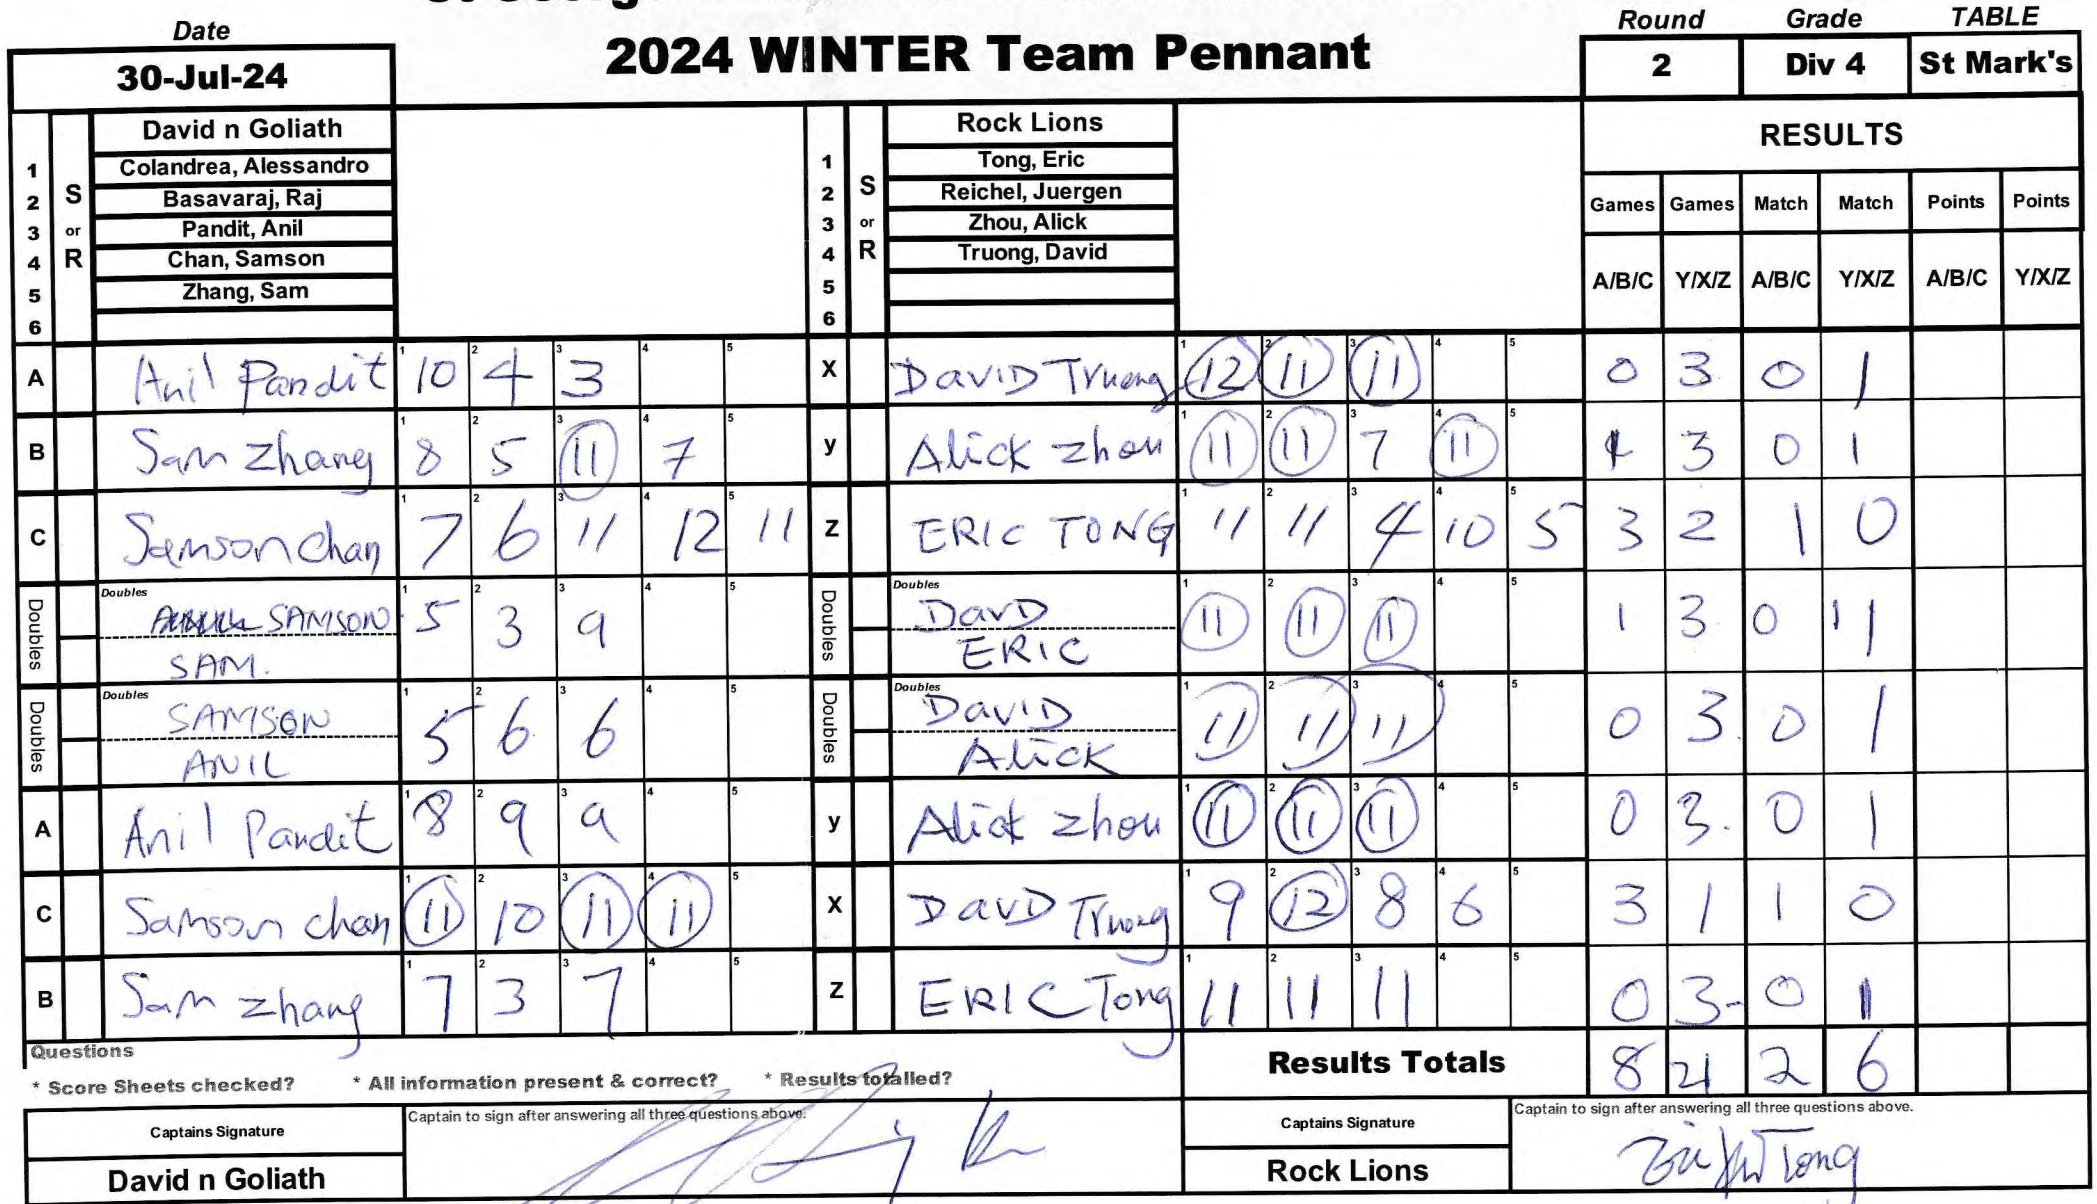 Date
30-Jul-24
2024 WINTER Team Pennant
Round Grade TABLE
2 Div 4 St Mark's
David n Goliath
1 Colandrea, Alessandro
2 Basavaraj, Raj
3 Pandit, Anil
4 Chan, Samson
5 Zhang, Sam
6
S or R
Rock Lions
1 Tong, Eric
2 Reichel, Juergen
3 Zhou, Alick
4 Truong, David
5
6
S or R
RESULTS
Games Games Match Match Points Points
A/B/C Y/X/Z A/B/C Y/X/Z A/B/C Y/X/Z
A Anil Pandit 10 4 3 X DAVID Truong 12 11 11 0 3 0 1
B Sam Zhang 8 5 11 7 y Alick Zhou 11 11 7 11 1 3 0 1
C Samson Chan 7 6 11 12 11 Z ERIC TONG 11 11 4 10 5 3 2 1 0
Doubles SAMSON 5 3 9 Doubles DavD 11 11 11 1 3 0 1
SAM. ERIC
Doubles SAMSON 5 6 6 Doubles DavID 11 11 11 0 3. 0 1
ANIL Alick
A Anil Pandit 8 9 9 y Alick Zhou 11 11 11 0 3. 0 1
C Samson chan 11 10 11 11 X DavD Truong 9 12 8 6 3 1 1 0
B Sam Zhang 7 3 7 Z ERIC Tong 11 11 11 0 3- 0 1
Questions
* Score Sheets checked? * All information present & correct? * Results totalled?
Results Totals 8 21 2 6
Captains Signature
Captain to sign after answering all three questions above.
David n Goliath
Captains Signature
Captain to sign after answering all three questions above.
Tong
Rock Lions